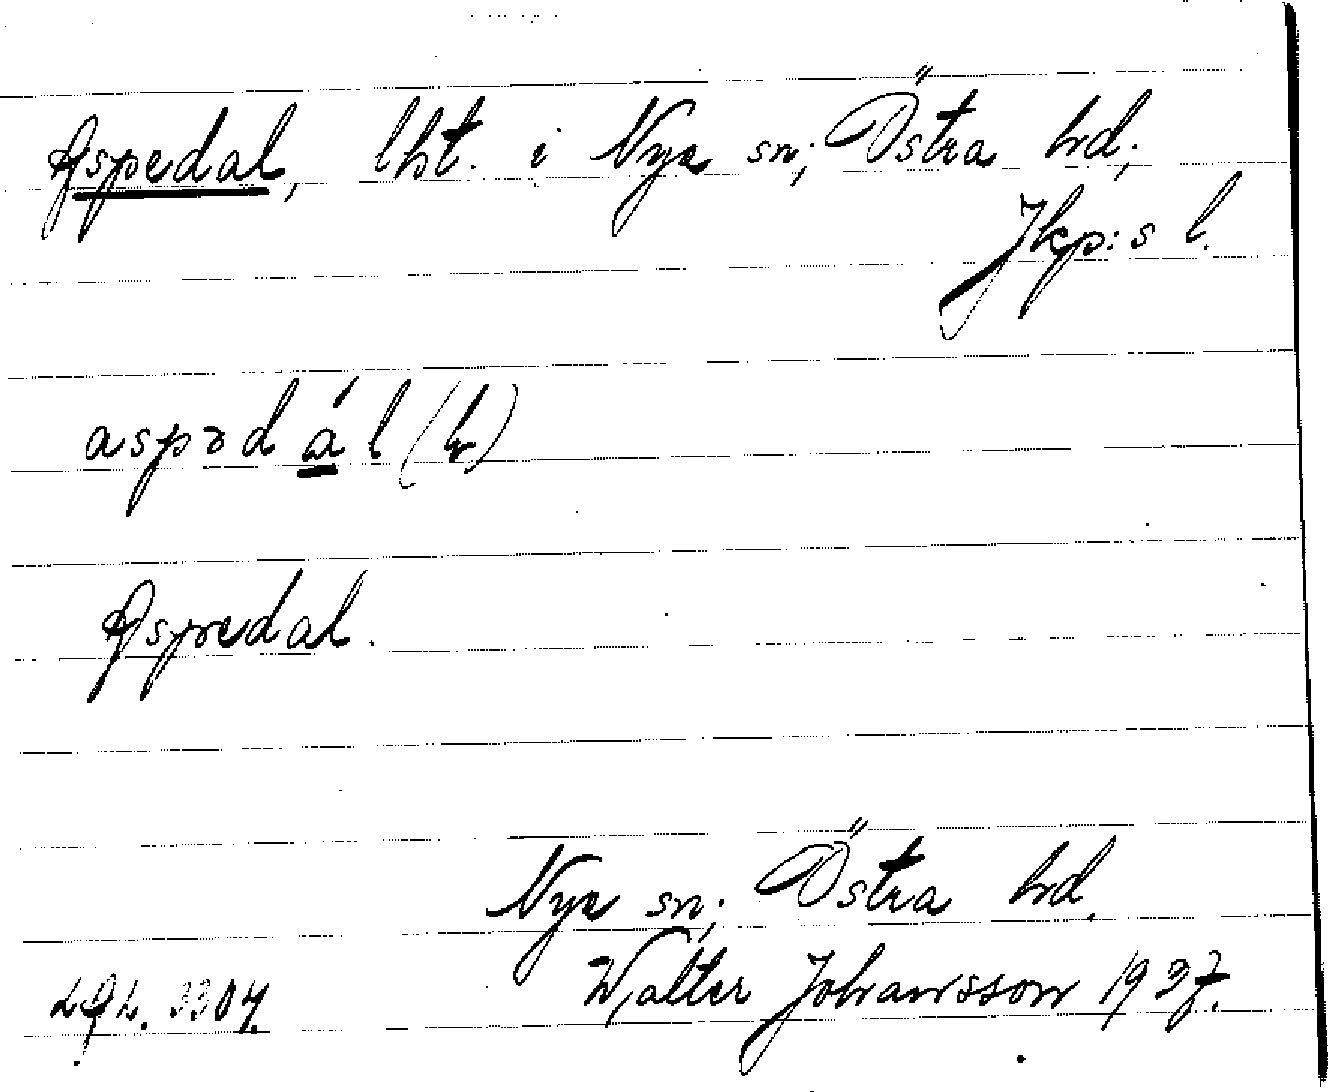 Aspedal, lht. i Nye sn; Östra hd;
Jkp:s l.
aspədál (k)
Aspedal.
Nye sn; Östra hd.
LAL. 3304. Walter Johansson 1937.